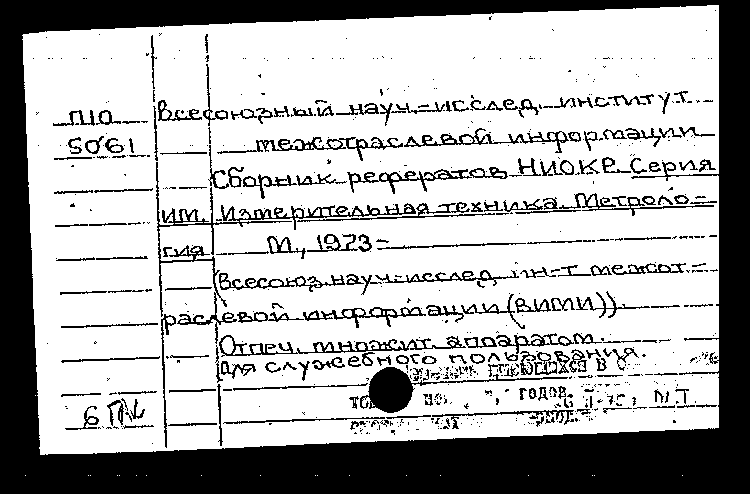 П10 Всесоюзный науч.-исслед. институт
5061 межотраслевой информации
Сборник рефератов НИОКР. Серия
ИМ. Измерительная техника. Метроло-
гия М., 1973-
(Всесоюз. науч-исслед. ин-т межот-
раслевой информации (ВИМИ)).
Отпеч. множит. аппаратом.
Для служебного пользования.
В
ГОДОВ.
6